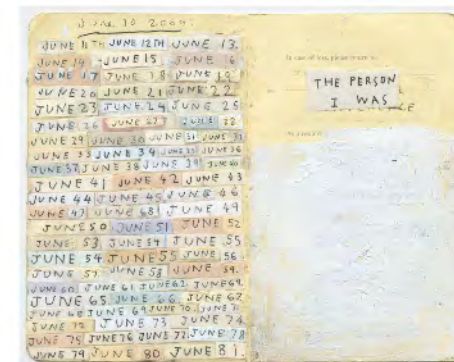 JUNE 10 2009.
JUNE 11TH JUNE 12TH JUNE 13.
JUNE 14 -JUNE 15 JUNE 16
JUNE 17 JUNE 18 JUNE 19
JUNE 20 JUNE 21 JUNE 22
JUNE 23 JUNE 24 JUNE 25
JUNE 26 JUNE 27 JUNE 28
JUNE 29 JUNE 30 JUNE 31 JUNE 32
JUNE 33 JUNE 34 JUNE 35 JUNE 36
JUNE 37 JUNE 38 JUNE 39 JUNE 40
JUNE 41 JUNE 42 JUNE 43
JUNE 44 JUNE 45 JUNE 46
JUNE 47 JUNE 48! JUNE 49
JUNE 50 JUNE 51 JUNE 52
JUNE 53 JUNE 54 JUNE 55
JUNE 54 JUNE 55 JUNE 56
JUNE 57 JUNE 58 JUNE 59.
JUNE 60 JUNE 61 JUNE 62 JUNE
JUNE 65 JUNE 66 JUNE 67
JUNE 68 JUNE 69 JUNE 70 JUNE 71
JUNE 72 JUNE 73 JUNE 74
JUNE 75 JUNE 76 JUNE 77 JUNE 78
JUNE 79 JUNE 80 JUNE 81.
In case of loss, please return to:
THE PERSON
I WAS